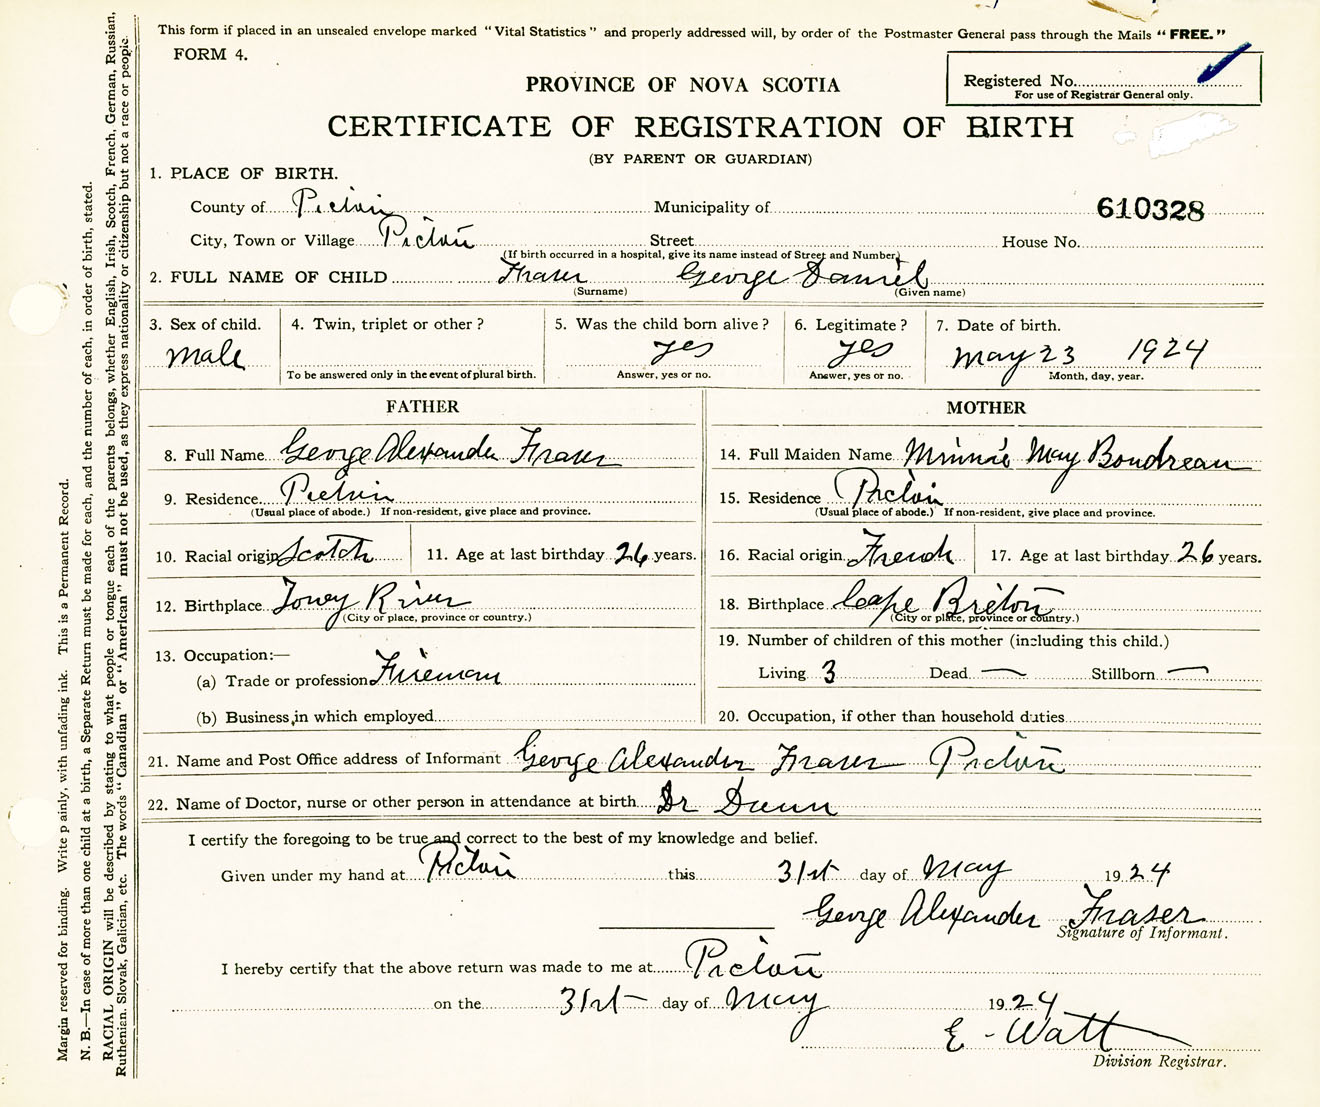 This form if placed in an unsealed envelope marked "Vital Statistics" and properly addressed will, by order of the Postmaster General pass through the Mails "FREE."
FORM 4.
Registered No.
For use of Registrar General only.
PROVINCE OF NOVA SCOTIA
CERTIFICATE OF REGISTRATION OF BIRTH
(BY PARENT OR GUARDIAN)
1. PLACE OF BIRTH.
County of Pictou Municipality of 610328
City, Town or Village Pictou Street House No.
(If birth occurred in a hospital, give its name instead of Street and Number)
2. FULL NAME OF CHILD Fraser George Daniel
(Surname) (Given name)
3. Sex of child. 4. Twin, triplet or other? 5. Was the child born alive? 6. Legitimate? 7. Date of birth.
male yes yes May 23 1924
To be answered only in the event of plural birth. Answer, yes or no. Answer, yes or no. Month, day, year.
FATHER
8. Full Name George Alexander Fraser
9. Residence Pictou
(Usual place of abode.) If non-resident, give place and province.
10. Racial origin Scotch 11. Age at last birthday 26 years.
12. Birthplace Toney River
(City or place, province or country.)
13. Occupation:—
(a) Trade or profession Fireman
(b) Business, in which employed
MOTHER
14. Full Maiden Name Minnie May Boudreau
15. Residence Pictou
(Usual place of abode.) If non-resident, give place and province.
16. Racial origin French 17. Age at last birthday 26 years.
18. Birthplace Cape Breton
(City or place, province or country.)
19. Number of children of this mother (including this child.)
Living 3 Dead — Stillborn —
20. Occupation, if other than household duties
21. Name and Post Office address of Informant George Alexander Fraser Pictou
22. Name of Doctor, nurse or other person in attendance at birth Dr Dunn
I certify the foregoing to be true and correct to the best of my knowledge and belief.
Given under my hand at Pictou this 31st day of May 1924
George Alexander Fraser
Signature of Informant.
I hereby certify that the above return was made to me at Pictou
on the 31st day of May 1924
E - Watt
Division Registrar.
Margin reserved for binding. Write plainly, with unfading ink. This is a Permanent Record.
N. B.—In case of more than one child at a birth, a Separate Return must be made for each, and the number of each, in order of birth, stated.
RACIAL ORIGIN will be described by stating to what people or tongue each of the parents belongs, whether English, Irish, Scotch, French, German, Russian,
Ruthenian, Slovak, Galician, etc. The words "Canadian" or "American" must not be used, as they express nationality or citizenship but not a race or people.